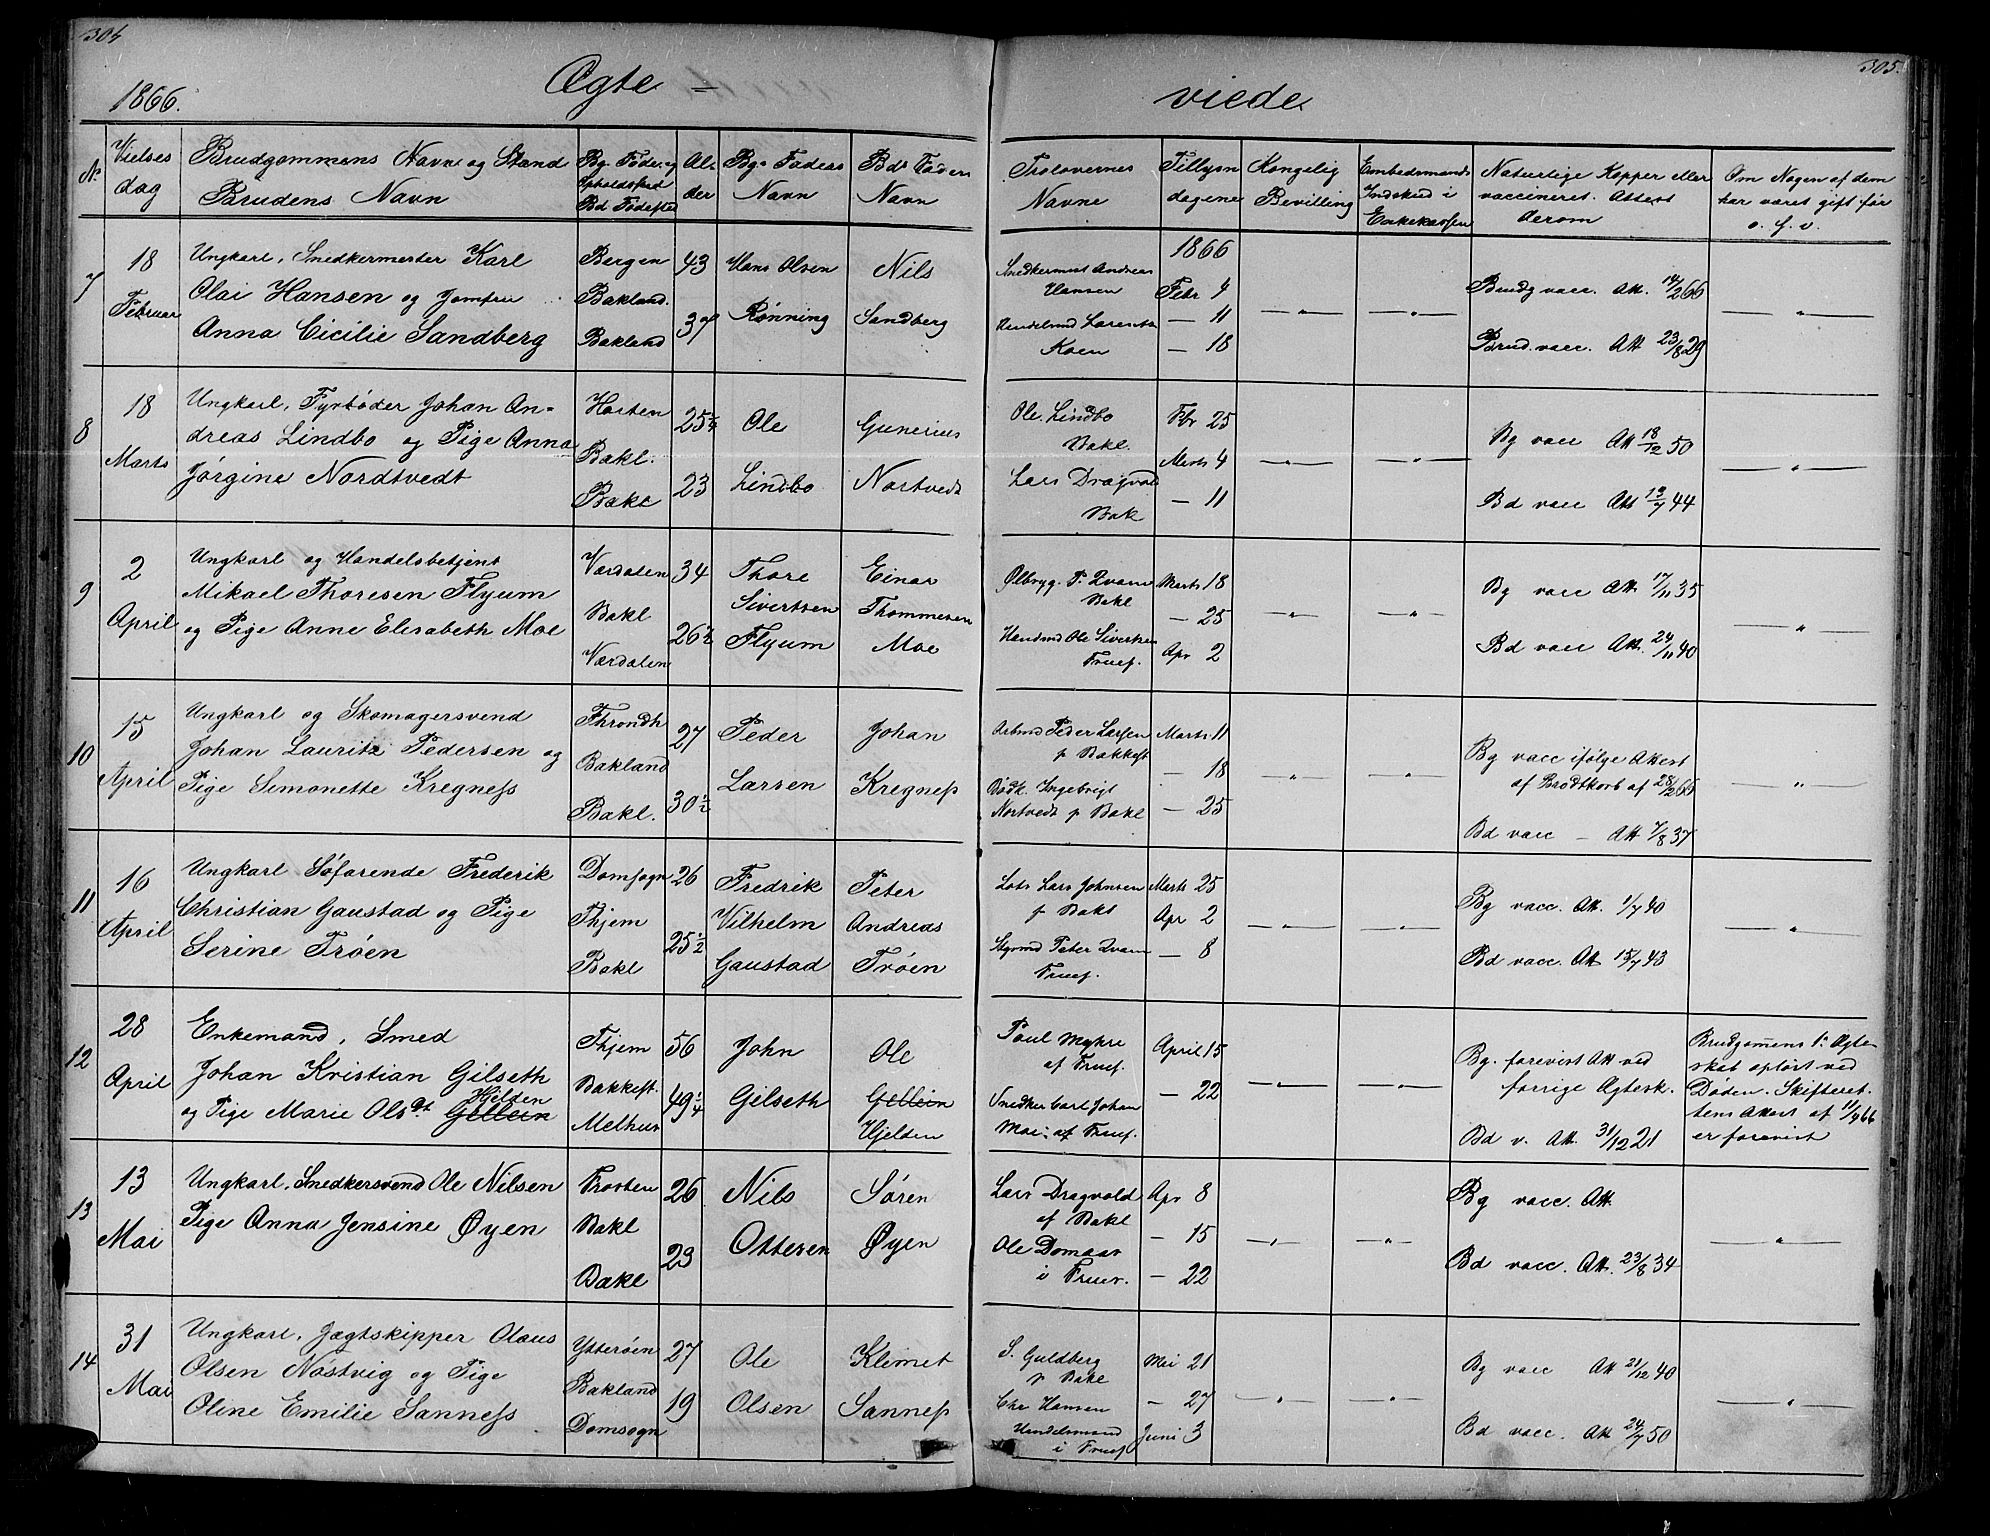 304
305.
1866.
Ægte = viede
No
Vielses dag
Brudgommens Navn og Stand
Brudens Navn
Bg. Føde- og Opholdssted
Bd Fødested
Alder
Bg.s Faders Navn
Bds Faders Navn
Trolovernes Navne
Tillysn dagene
Kongelig Bevilling
Embedsmands Indskud i Enkekassen
Naturlige Kopper eller vaccineret. Attest derom
Om Nogen af dem har været gift før o. s. v.
7
18 Februar
Ungkarl, Snedkermester Karl
Olai Hansen og Jomfru
Anna Cicilie Sandberg
Bergen
Bakland.
Bakland
43
37
Hans Olsen
Rønning
Nils
Sandberg
Snedkermest Andreas
Hansen
Koen
1866
Febr 4
— 11
— 18
— " —
— " —
Brudg vacc. Att. 14/2 66
Brud. vacc. Att 23/8 29
— " —
8
18 Marts
Ungkarl, Fyrbøder Johan An=
dreas Lindbo og Pige Anna
Jørgine Nordtvedt
Horten
Bakl.
Bakl
25 1/4
23
Ole
Lindbo
Gunerius
Nortvedt
Ole Lindbo
Bakl.
Lars Dragvold
Bak
Fbr 25
Marts 4
— 11
— " —
— " —
Bg vacc Att 18/12 50
Bd vacc Att 13/7 44
— " —
9
2 April
Ungkarl og Handelsbetjent
Mikael Thoresen Flyum
og Pige Anne Elisabeth Moe
Værdalen
Bakl
Værdalen
34
26 1/2
Thore
Sivertsen
Flyum
Einar
Thommesen
Moe
Ølbryg. P. Kvam
Bakl
Handmd Ole Sivertsen
Fruef.
Marts 18
— 25
Apr 2
— " —
— " —
Bg vacc Att. 17/11 35
Bd vacc Att. 24/11 40
— " —
10
15 April
Ungkarl og Skomagersvend
Johan Lauritz Pedersen og
Pige Simonette Kregness
Throndh
Bakland
Bakl.
27
30 1/2
Peder
Larsen
Johan
Kregness
Arbmd Peder Larsen
p Bakkest
Bødk. Ingebrigt
Nortvedt p Bakl
Marts 11
— 18
— 25
— " —
— " —
Bg vacc ifølge Attest
af Brodtkorb af 28/2 65
Bd vacc — Att 7/8 37
— " —
11
16 April
Ungkarl Søfarende Frederik
Christian Gaustad og Pige
Serine Trøen
Domsogn
Thjem
Bakl
26
25 1/2
Fredrik
Vilhelm
Gaustad
Peter
Andreas
Trøen
Lods Lars Johnsen
p Bakl
Styrmd Peter Kvam
Fruef.
Marts 25
Apr 2
— 8
— " —
— " —
Bg vacc. Att. 1/7 40
Bd vacc. Att 15/7 43
— " —
12
28 April
Enkemand, Smed
Johan Kristian Gilseth
Hjelden
og Pige Marie Olsdt Gellein
Thjem
Bakkest.
Melhus
56
49 1/4
John
Gilseth
Ole
Gellein
Hjelden
Paul Myhre
af Fruef.
Snedker Carl Johan
Moe af Fruef.
April 15
— 22
— " —
— " —
Bg. forevist Att ved
forrige Ægtesk.
Bd v. Att. 31/12 21
Brudgomens 1e Ægte
skab opløst ved
Døden. Skifteret
tens Attest af 11/4 66
er forevist
13
13 Mai
Ungkarl, Snedkersvend Ole Nilsen
Pige Anna Jensine Øyen
Frosten
Bakl
Bakl
26
29
Nils
Ottersen
Søren
Øyen
Lars Dragvold
af Bakl
Ole Domaas
i Fruef.
Apr 8
— 15
— 22
— " —
— " —
Bg vacc. Att
Bd vacc. Att. 23/8 34
— " —
14
31 Mai
Ungkarl, Jægtskipper Olaus
Olsen Nøstvig og Pige
Oline Emilie Sanness
Ytterøen
Bakland
Domsogn
27
19
Ole
Olsen
Klemet
Sanness
S. Guldberg
p Bakl
Chr Hansen
Handelsmand
i Fruef
Mai 21
— 27
Juni 3
— " —
— " —
Bg vacc Att 21/12 40
Bd vacc. Att 24/7 50
— " —